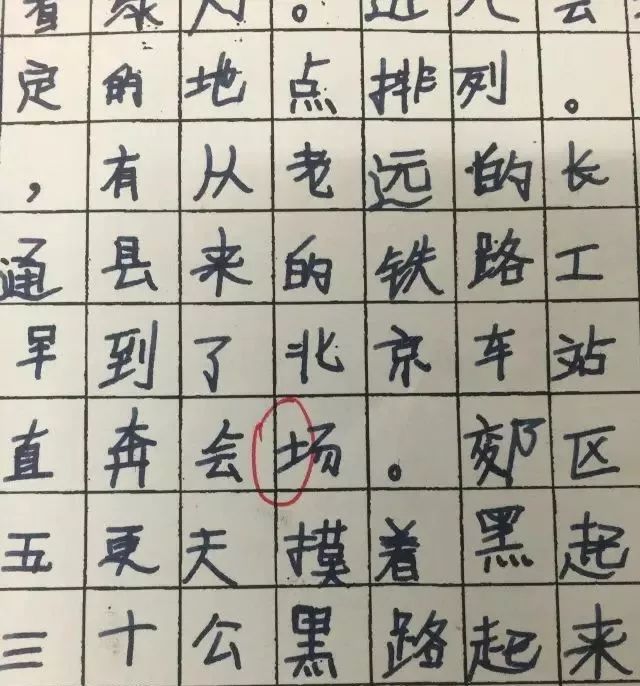 定的地点排列。
，有从老远的长
通县来的铁路工
早到了北京车站
直奔会场。郊区
五更天摸着黑起
三十公黑路起来